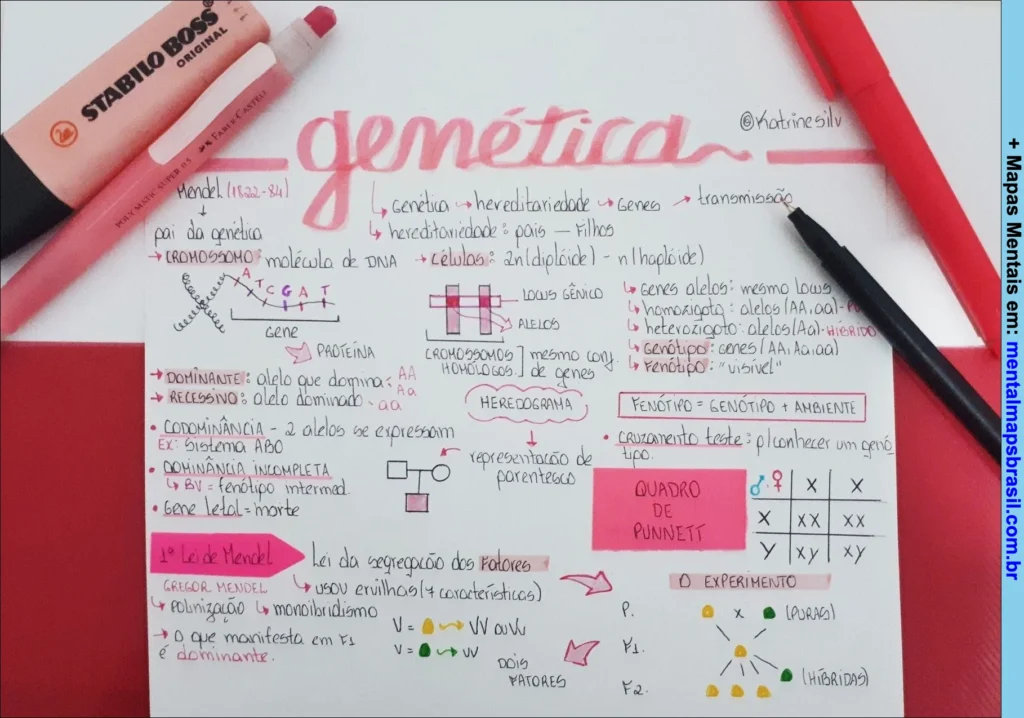 STABILO BOSS
ORIGINAL
POLY MATIC SUPER
FABER-CASTELL
genética
@Katrinesilv
Mendel (1822-84)
pai da genética
genética → hereditariedade → genes → transmissão
hereditariedade: pais — filhos
→ CROMOSSOMO: molécula de DNA
→ células: 2n (diplóide) - n (haplóide)
A T C G A T
GENE
PROTEÍNA
LOCUS GÊNICO
ALELOS
CROMOSSOMOS HOMÓLOGOS
mesmo conj. de genes
genes alelos: mesmo locus
homozigoto: alelos (AA, aa)-
heterozigoto: alelos (Aa)-HÍBRIDO
genótipo: genes (AA, Aa, aa)
fenótipo: "visível"
→ DOMINANTE: alelo que domina: AA
Aa
→ RECESSIVO: alelo dominado - aa
HEREDOGRAMA
representação de parentesco
FENÓTIPO = GENÓTIPO + AMBIENTE
• CODOMINÂNCIA - 2 alelos se expressam
EX: Sistema ABO
• DOMINÂNCIA INCOMPLETA
BV = fenótipo intermed.
• Gene letal = morte
• cruzamento teste: p/conhecer um genó
tipo.
QUADRO
DE
PUNNETT
♂ ♀ X X
X XX XX
Y XY XY
1ª Lei de Mendel
Lei da segregação dos Fatores
GREGOR MENDEL
usou ervilhas (7 características)
Polinização
monoibridismo
→ O que manifesta em F1
é dominante.
V = VV ou Vv
v = vv
DOIS
FATORES
O EXPERIMENTO
P. X (PURAS)
F1.
F2. (HÍBRIDAS)
+ Mapas Mentais em: mentalmapsbrasil.com.br